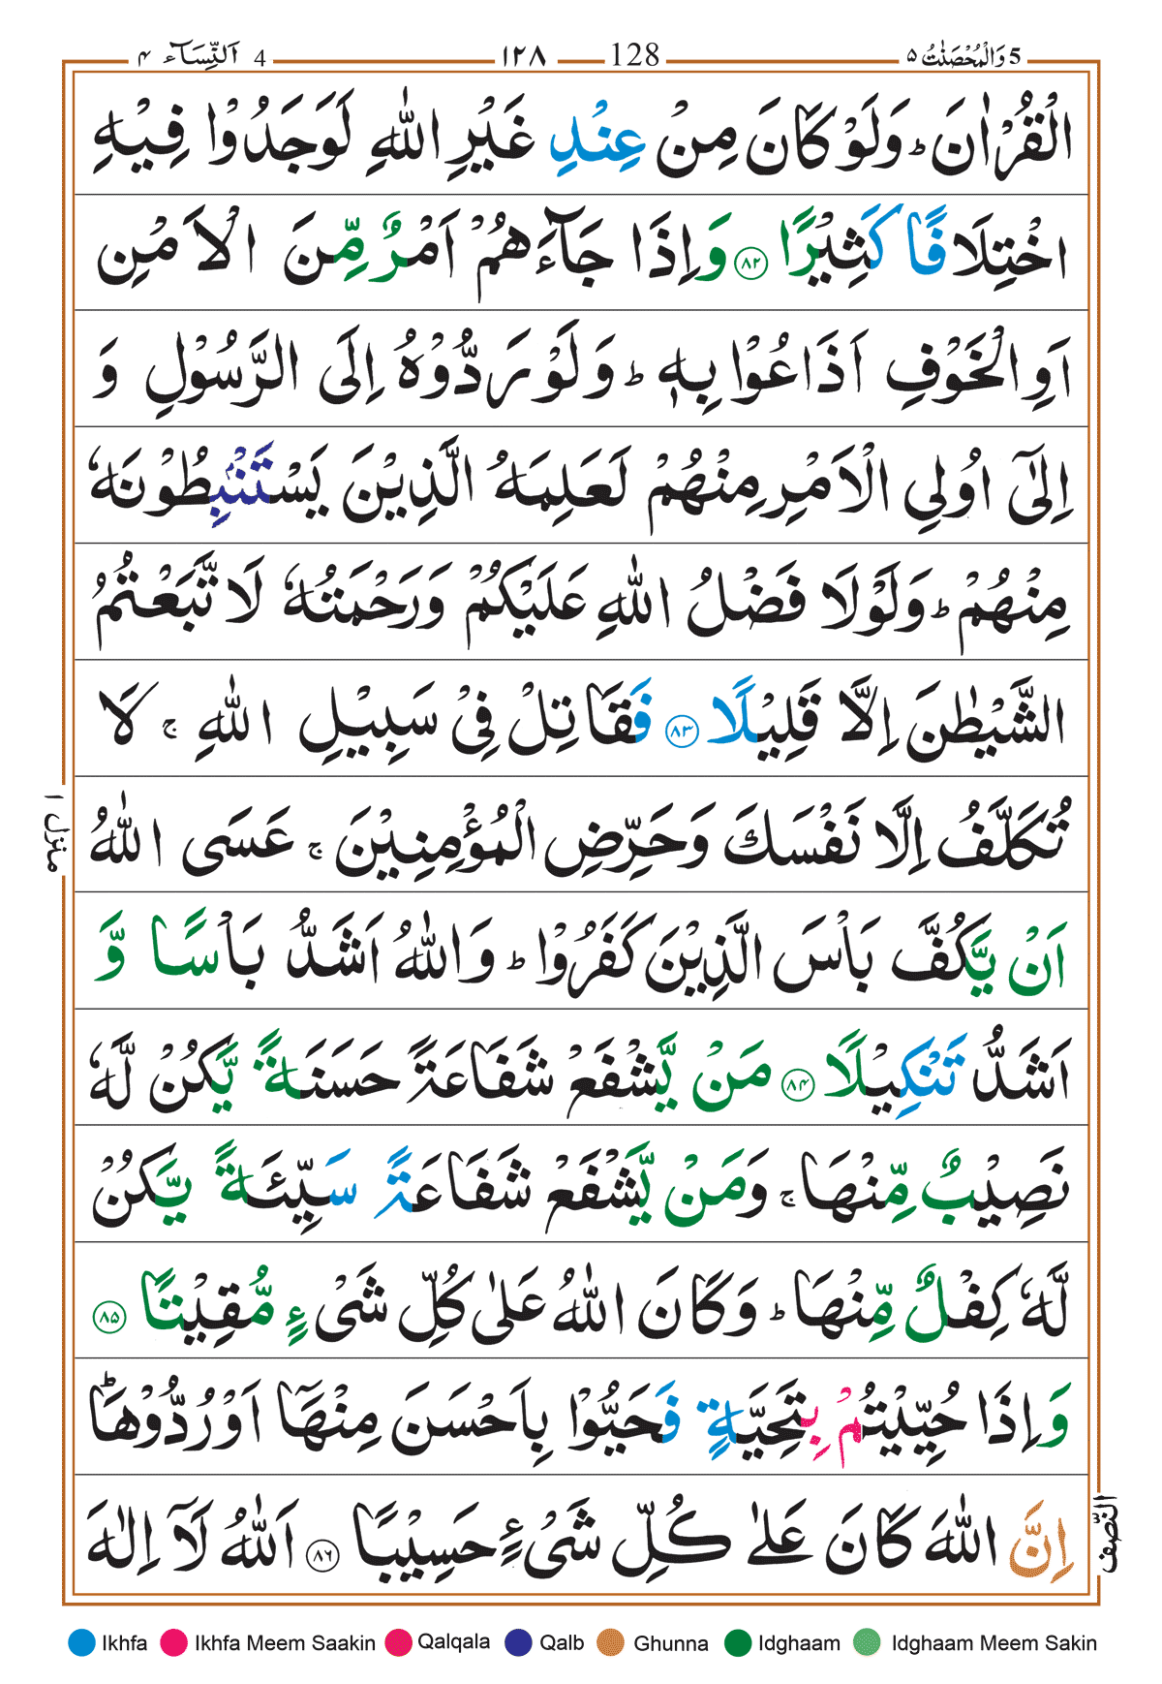 5 وَالْمُحْصَنٰتُ ۵ 128 ۱۲۸ 4 اَلنِّسَآء ۴
الْقُرْاٰنَ ؕ وَلَوْ كَانَ مِنْ عِنْدِ غَيْرِ اللّٰهِ لَوَجَدُوْا فِيْهِ
اخْتِلَافًا كَثِيْرًا ۸۲ وَاِذَا جَآءَهُمْ اَمْرٌ مِّنَ الْاَمْنِ
اَوِ الْخَوْفِ اَذَاعُوْا بِهٖ ؕ وَلَوْ رَدُّوْهُ اِلَى الرَّسُوْلِ وَ
اِلٰٓى اُولِى الْاَمْرِ مِنْهُمْ لَعَلِمَهُ الَّذِيْنَ يَسْتَنْۢبِطُوْنَهٗ
مِنْهُمْ ؕ وَلَوْلَا فَضْلُ اللّٰهِ عَلَيْكُمْ وَرَحْمَتُهٗ لَا تَّبَعْتُمُ
الشَّيْطٰنَ اِلَّا قَلِيْلًا ۸۳ فَقَاتِلْ فِىْ سَبِيْلِ اللّٰهِ ۚ لَا
تُكَلَّفُ اِلَّا نَفْسَكَ وَحَرِّضِ الْمُؤْمِنِيْنَ ۚ عَسَى اللّٰهُ
منزل ۱
اَنْ يَّكُفَّ بَاْسَ الَّذِيْنَ كَفَرُوْا ؕ وَاللّٰهُ اَشَدُّ بَاْسًا وَّ
اَشَدُّ تَنْكِيْلًا ۸۴ مَنْ يَّشْفَعْ شَفَاعَةً حَسَنَةً يَّكُنْ لَّهٗ
نَصِيْبٌ مِّنْهَا ۚ وَمَنْ يَّشْفَعْ شَفَاعَةً سَيِّئَةً يَّكُنْ
لَّهٗ كِفْلٌ مِّنْهَا ؕ وَكَانَ اللّٰهُ عَلٰى كُلِّ شَىْءٍ مُّقِيْتًا ۸۵
وَاِذَا حُيِّيْتُمْ بِتَحِيَّةٍ فَحَيُّوْا بِاَحْسَنَ مِنْهَآ اَوْ رُدُّوْهَا ؕ
اِنَّ اللّٰهَ كَانَ عَلٰى كُلِّ شَىْءٍ حَسِيْبًا ۸۶ اَللّٰهُ لَآ اِلٰهَ
النّصف
Ikhfa Ikhfa Meem Saakin Qalqala Qalb Ghunna Idghaam Idghaam Meem Sakin